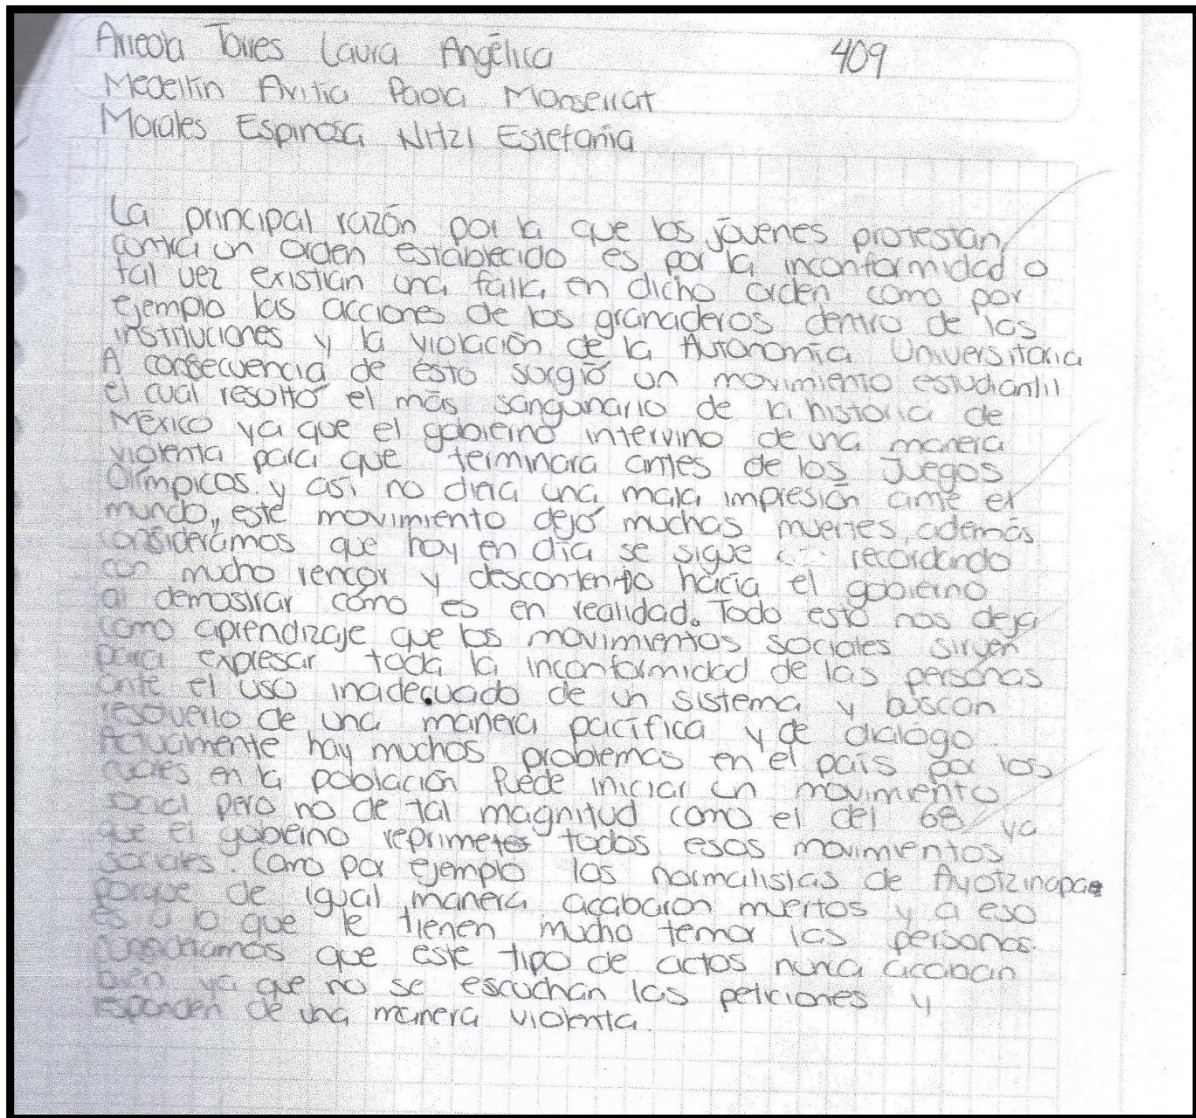 Arreola Torres Laura Angélica 409
Medellín Avitia Paola Monserrat
Morales Espinosa Nitzi Estefanía
La principal razón por la que los jóvenes protestan
contra un orden establecido es por la inconformidad o
tal vez existían una falla en dicho orden como por
ejemplo las acciones de los granaderos dentro de las
instituciones y la violación de la Autonomía Universitaria
A consecuencia de ésto surgió un movimiento estudiantil
el cual resultó el más sanguinario de la historia de
México ya que el gobierno intervino de una manera
violenta para que terminara antes de los Juegos
Olímpicos y así no diera una mala impresión ante el
mundo, este movimiento dejó muchas muertes, además
considerámos que hoy en día se sigue recordando
con mucho rencor y descontento hacía el gobierno
al demostrar cómo es en realidad. Todo esto nos deja
como aprendizaje que los movimientos sociales sirven
para expresar toda la inconformidad de las personas
ante el uso inadecuado de un sistema y buscan
resolverlo de una manera pacífica y de dialógo.
Actualmente hay muchos problemas en el país por los
cuales en la población Puede iniciar un movimiento
social pero no de tal magnitud como el del 68 ya
que el gobierno reprimete todos esos movimientos
sociales. Como por ejemplo los normalistas de Ayotzinapa
porque de igual manera acabaron muertos y a eso
es a lo que le tienen mucho temor las personas.
que este tipo de actos nunca acaban
bien ya que no se escuchan las peticiones y
responden de una manera violenta.